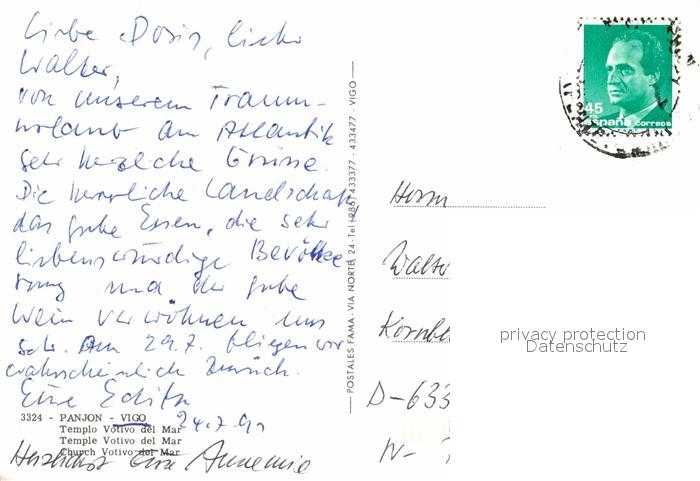 Liebe Doris, lieber
Walter,
von unserem Traum-
urlaub am Atlantik
sehr herzliche Grüsse.
Die herrliche Landschaft,
das gute Essen, die sehr
liebenswürdige Bevölke
rung und der gute
Wein verwöhnen uns
sehr. Am 29.7. fliegen wir
wahrscheinlich zurück.
Eure Edith
24.7.90
3324 - PANJON - VIGO
Templo Votivo del Mar
Temple Votivo del Mar
Church Votivo del Mar
Herzlichst Eure Annemie
POSTALES FAMA - VIA NORTE, 24 - Tel (986) 433377 - 433477 - VIGO
45
españa correos
Herrn
Walter
D-633
W-
privacy protection
Datenschutz